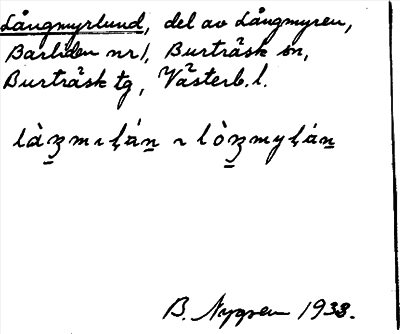 Långmyrlund, del av Långmyren,
Barliden nr 1, Burträsk sn,
Burträsk tg, Västerb. l.
B. Nygren 1938.